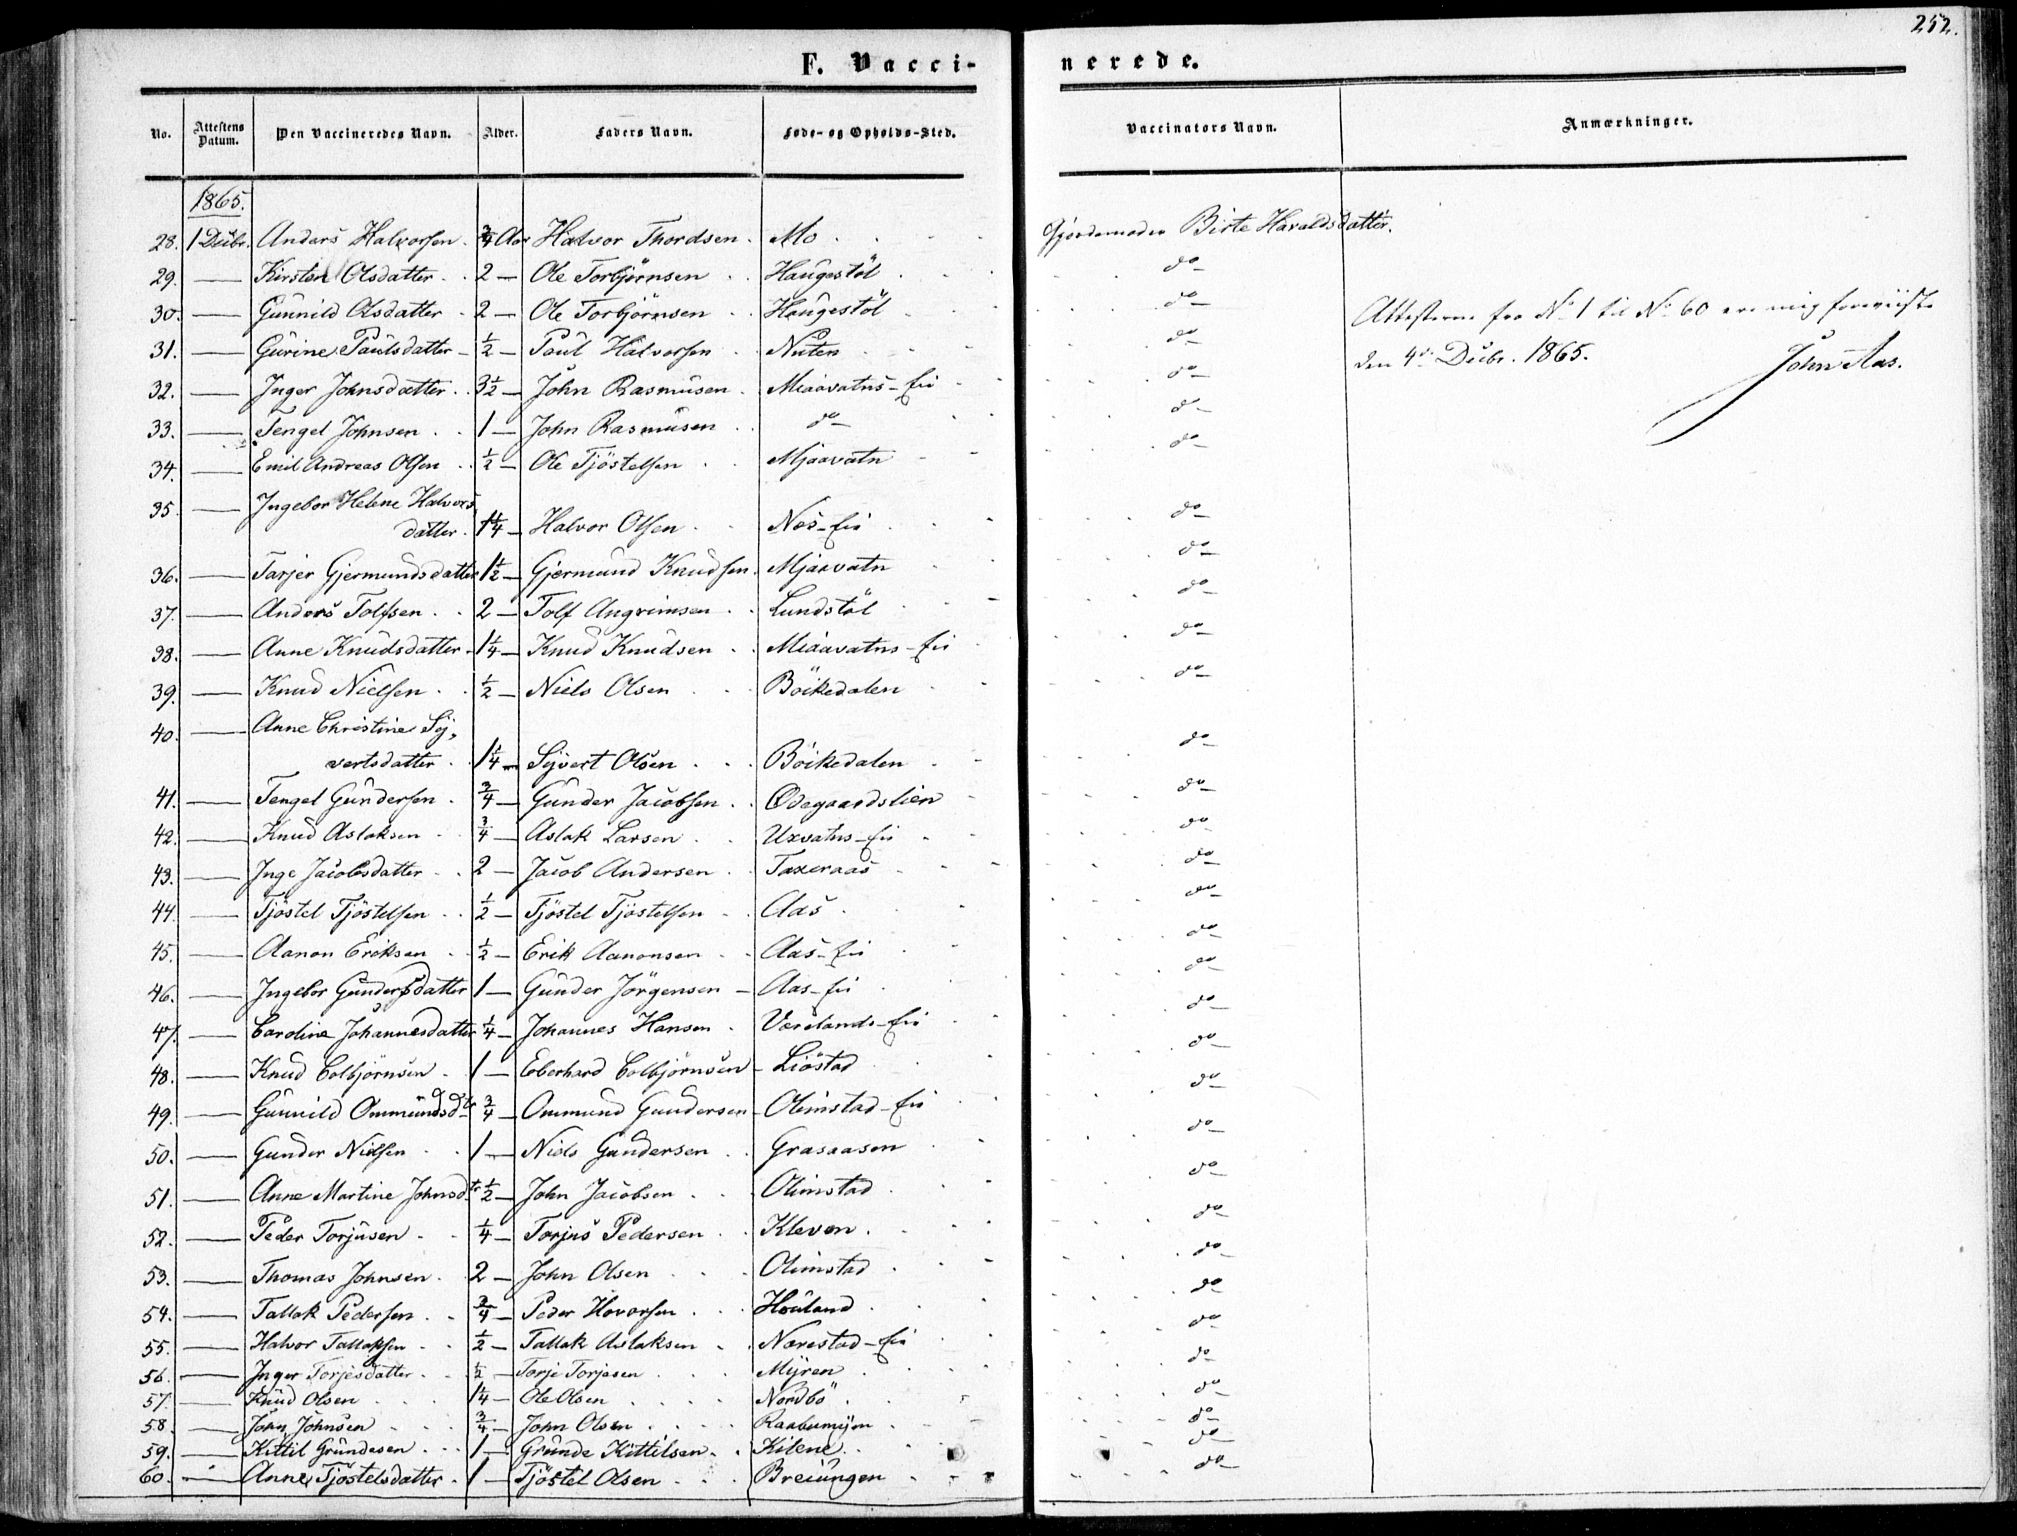 252.
F. Vaccinerede.
No. | Attestens Datum. | Den Vaccineredes Navn. | Alder. | Faders Navn. | Føde- og Opholds-Sted. | Vaccinators Navn. | Anmærkninger.
1865.
28. | 1 Decbr. | Anders Halvorsen | 3/4 Aar | Halvor Thordsen | Mo | Gjordemoder Birte Haraldsdatter.
29. | — | Kirsten Olsdatter | 2 — | Ole Torbjörnsen | Haugestöl | do
30. | — | Gunnild Olsdatter | 2 — | Ole Torbjörnsen | Haugestöl | do | Attesterne fra No 1 til No 60 ere mig foreviiste
31. | — | Gurine Paulsdatter | 1/2 — | Paul Halvorsen | Nuten | do | den 4de Decbr. 1865. John Aas.
32. | — | Inger Johnsdatter | 3 1/2 — | John Rasmusen | Miaavatns-Eie | do
33. | — | Tengel Johnsen | 1 — | John Rasmusen | do | do
34. | — | Emil Andreas Olsen | 1/2 — | Ole Tjöstelsen | Mjaavatn | do
35. | — | Ingebor Helene Halvors
datter | 1 1/4 — | Halvor Olsen | Næs-Eie | do
36. | — | Tarjer Gjermundsdatter | 1 1/2 — | Gjermund Knudsen | Mjaavatn | do
37. | — | Anders Tolfsen | 2 — | Tolf Angrimsen | Lundstöl | do
38. | — | Anne Knudsdatter | 1 1/4 — | Knud Knudsen | Miaavatns-Eie | do
39. | — | Knud Nielsen | 1/2 — | Niels Olsen | Böikedalen | do
40. | — | Anne Christine Sy,
vertsdatter | 1 1/4 — | Syvert Olsen | Böikedalen | do
41. | — | Tengel Gundersen | 3/4 — | Gunder Jacobsen | Ødegaardslien | do
42. | — | Knud Aslaksen | 3/4 — | Aslak Larsen | Uxvatns-Eie | do
43. | — | Inge Jacobsdatter | 2 — | Jacob Andersen | Taxeraas | do
44. | — | Tjöstel Tjöstelsen | 1/2 — | Tjöstel Tjöstelsen | Aas | do
45. | — | Aanon Eriksen | 1/2 — | Erik Aanonsen | Aas-Eie | do
46. | — | Ingebor Gundersdatter | 1 — | Gunder Jörgensen | Aas-Eie | do
47. | — | Caroline Johannesdatter | 1/4 — | Johannes Hansen | Værelands-Eie | do
48. | — | Knud Colbjörnsen | 1 — | Eberhard Colbjörnsen | Liöstad | do
49. | — | Gunnild Ommundsdtr | 3/4 — | Ommund Gundersen | Olimstad-Eie | do
50. | — | Gunder Nielsen | 1 — | Niels Gundersen | Grasaasen | do
51. | — | Anne Martine Johnsdtr | 1/2 — | John Jacobsen | Olimstad | do
52. | — | Peder Torjusen | 1/4 — | Torjus Pedersen | Kleven | do
53. | — | Thomas Johnsen | 2 — | John Olsen | Olimstad | do
54. | — | Tallak Pedersen | 3/4 — | Peder Hovorsen | Houland | do
55. | — | Halvor Tallaksen | 1/2 — | Tallak Aslaksen | Nærestad-Eie | do
56. | — | Inger Torjesdatter | 1/2 — | Torje Torjesen | Myren | do
57. | — | Knud Olsen | 1 1/4 | Ole Olsen | Nordbö | do
58. | — | John Johnsen | 3/4 — | John Olsen | Raabumyen | do
59. | — | Kittil Grundesen | 1 — | Grunde Kittilsen | Kilene | do
60. | — | Anne Tjöstelsdatter | 1 — | Tjöstel Olsen | Breiungen | do